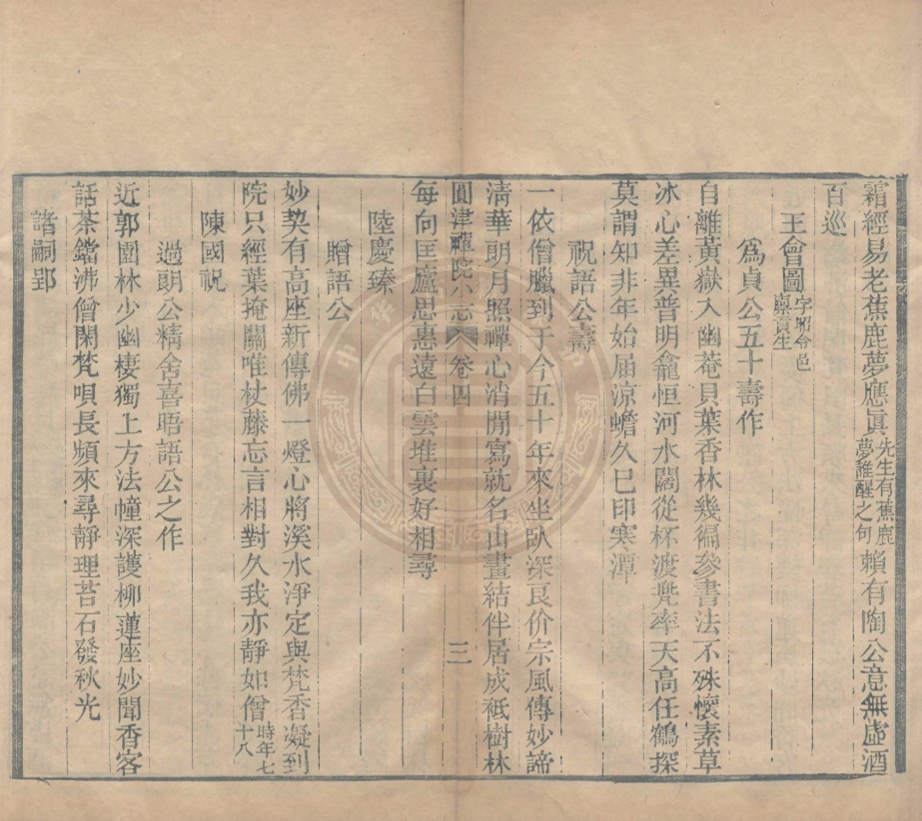 霜經易老蕉鹿夢應眞先生有蕉鹿夢誰醒之句賴有陶公意無虛酒
百巡
王會圖字昭令邑廩貢生
爲貞公五十壽作
自離黃嶽入幽菴貝葉香林幾徧參書法不殊懷素草
冰心差異普明龕恒河水闊從杯渡兜率天高任鶴探
莫謂知非年始届涼蟾久已印寒潭
祝語公壽
一依僧臘到于今五十年來坐臥深良价宗風傳妙諦
淸華朗月照禪心消閒寫就名山畫結伴居成祗樹林
圓津禪院小志 卷四 三
每向匡廬思惠遠白雲堆裏好相尋
陸慶臻
贈語公
妙契有高座新傳佛一燈心將溪水淨定與梵香凝到
院只經葉掩關唯杖藤忘言相對久我亦靜如僧時年七十八
陳國祝
過朗公精舍喜晤語公之作
近郭園林少幽棲獨上方法幢深護柳蓮座妙聞香客
話茶鐺沸僧閑梵唄長頻來尋靜理苔石發秋光
諸嗣郢